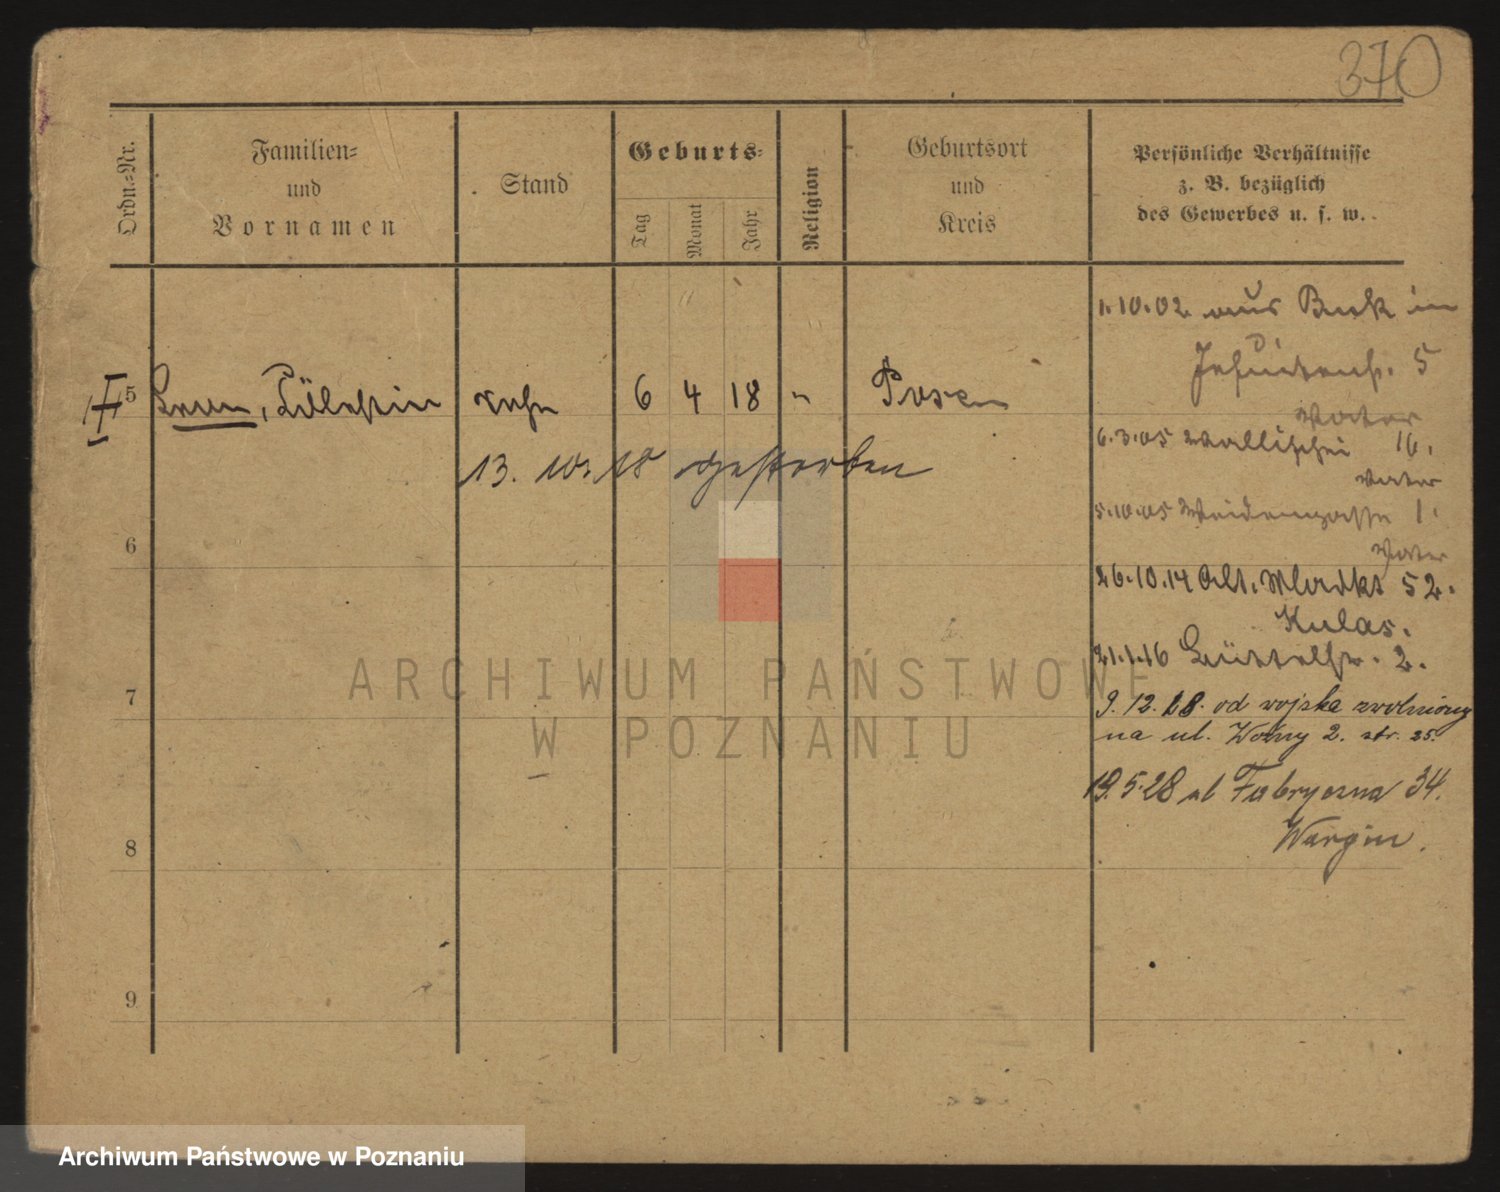 370
Ordn.-Nr.
Familien-
und
Vornamen
Stand
Geburts-
Tag
Monat
Jahr
Religion
Geburtsort
und
Kreis
Persönliche Verhältnisse
z. B. bezüglich
des Gewerbes u. s. w.
1.10.02 aus Buk in
Jesuitenstr. 5
Vater
5
6 4 18 " Posen
6.3.05 Wallischei 16.
Vater
13. 10. 18 gestorben
5.10.05 Weidengasse 1.
Vater
6
26.10.14 Alt. Markt 52.
Kulas.
21.1.16 Büttelstr. 2.
ARCHIWUM PAŃSTWOWE
W POZNANIU
7
9. 12. 18. od wojska zwolniony
na ul. Woźny 2. str. 25.
19.5.28 ul Fabryczna 34.
8
9
Archiwum Państwowe w Poznaniu